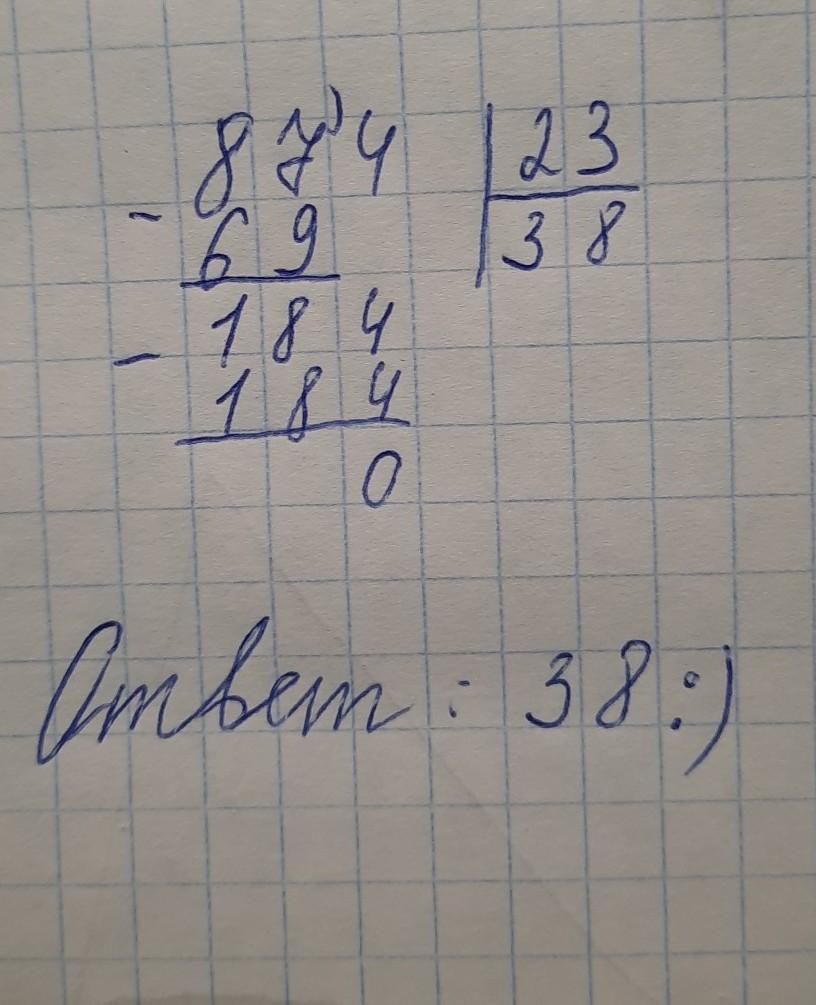 874 | 23
- 69 | 38
- 184
184
0
Ответ: 38 :)